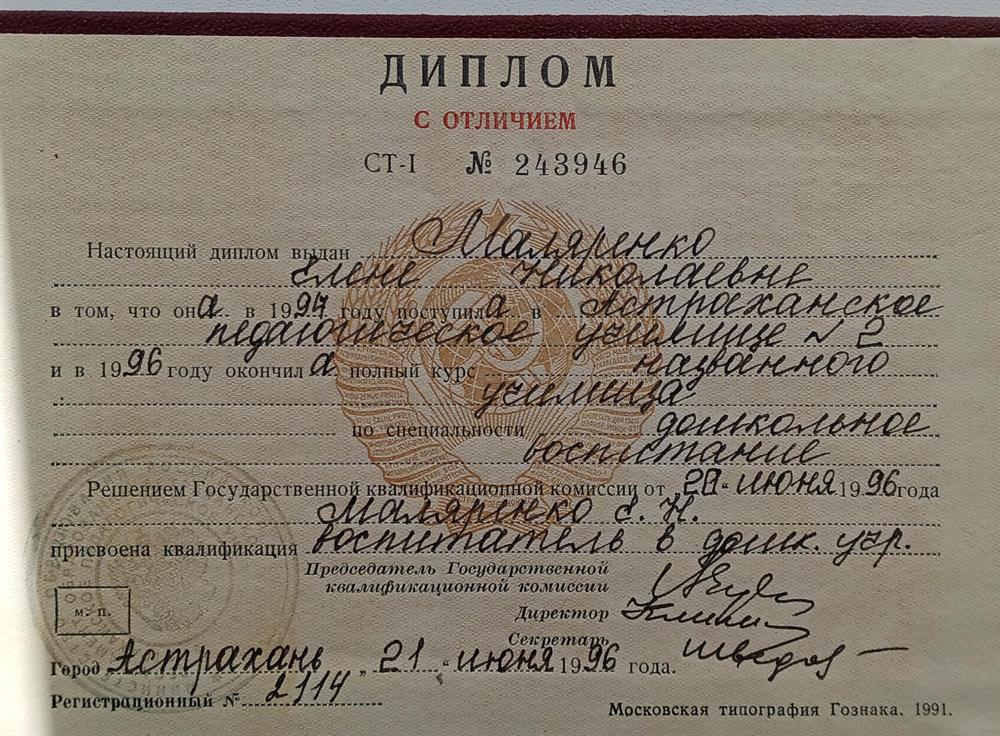 ДИПЛОМ
С ОТЛИЧИЕМ
СТ-I № 243946
Настоящий диплом выдан Маляренко
Елене Николаевне
в том, что она в 1994 году поступила в Астраханское
педагогическое училище № 2
и в 1996 году окончила полный курс названного
училища
по специальности дошкольное
воспитание
Решением Государственной квалификационной комиссии от „ “ июня 1996 года
Маляренко Е. Н.
присвоена квалификация воспитатель в дошк. учр.
Председатель Государственной
квалификационной комиссии
Директор
Секретарь
м. п.
Город Астрахань, „21“ июня 1996 года.
Регистрационный № 2114
Московская типография Гознака. 1991.